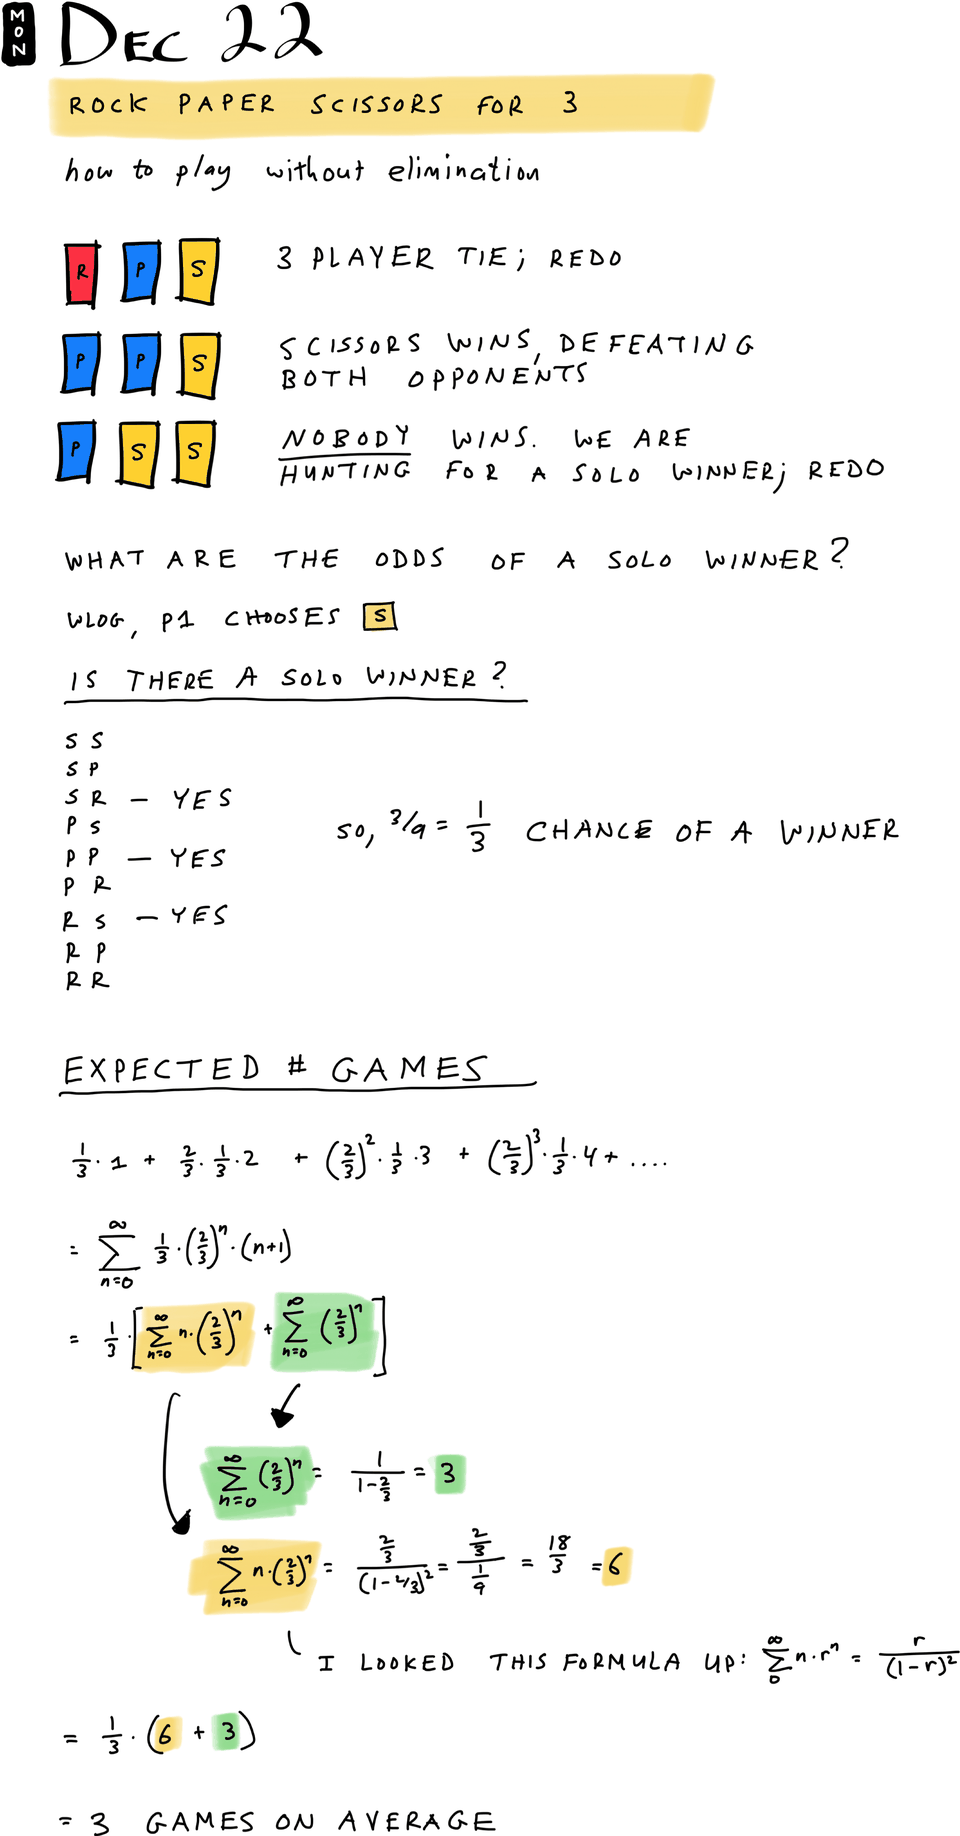 MON DEC 22
ROCK PAPER SCISSORS FOR 3
how to play without elimination
R P S 3 PLAYER TIE; REDO
P P S SCISSORS WINS, DEFEATING
BOTH OPPONENTS
P S S NOBODY WINS. WE ARE
HUNTING FOR A SOLO WINNER; REDO
WHAT ARE THE ODDS OF A SOLO WINNER?
WLOG, P1 CHOOSES S
IS THERE A SOLO WINNER?
S S
S P
S R — YES
P S
P P — YES
P R
R S — YES
R P
R R
so, 3/9 = 1/3 CHANCE OF A WINNER
EXPECTED # GAMES
1/3 · 1 + 2/3 · 1/3 · 2 + (2/3)² · 1/3 · 3 + (2/3)³ · 1/3 · 4 + ....
= ∞ ∑ n=0 1/3 · (2/3)ⁿ · (n+1)
= 1/3 · [ ∞ ∑ n=0 n · (2/3)ⁿ + ∞ ∑ n=0 (2/3)ⁿ ]
∞ ∑ n=0 (2/3)ⁿ = 1/(1-2/3) = 3
∞ ∑ n=0 n · (2/3)ⁿ = (2/3)/(1-2/3)² = (2/3)/(1/9) = 18/3 = 6
I LOOKED THIS FORMULA UP: ∞ ∑ 0 n · rⁿ = r/(1-r)²
= 1/3 · (6 + 3)
= 3 GAMES ON AVERAGE